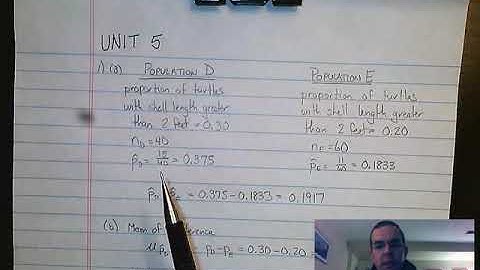 UNIT 5
1) (a) POPULATION D
proportion of turtles
with shell length greater
than 2 feet = 0.30
n_D = 40
p̂_D = 15/40 = 0.375
POPULATION E
proportion of turtles
with shell length greater
than 2 feet = 0.20
n_E = 60
p̂_E = 11/60 = 0.1833
p̂_D = 0.375 - 0.1833 = 0.1917
(b) Mean of
p_D - p_E = 0.30 - 0.20 =